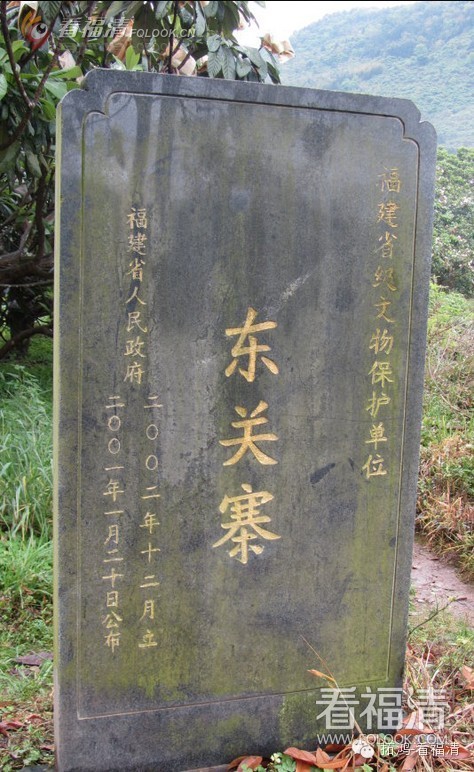 福建省级文物保护单位
东关寨
福建省人民政府
二〇〇二年十二月立
二〇〇一年一月二十日公布
看福清
FOLOOK.CN
看福清
WWW.FOLOOK.COM
拓鸿看福清